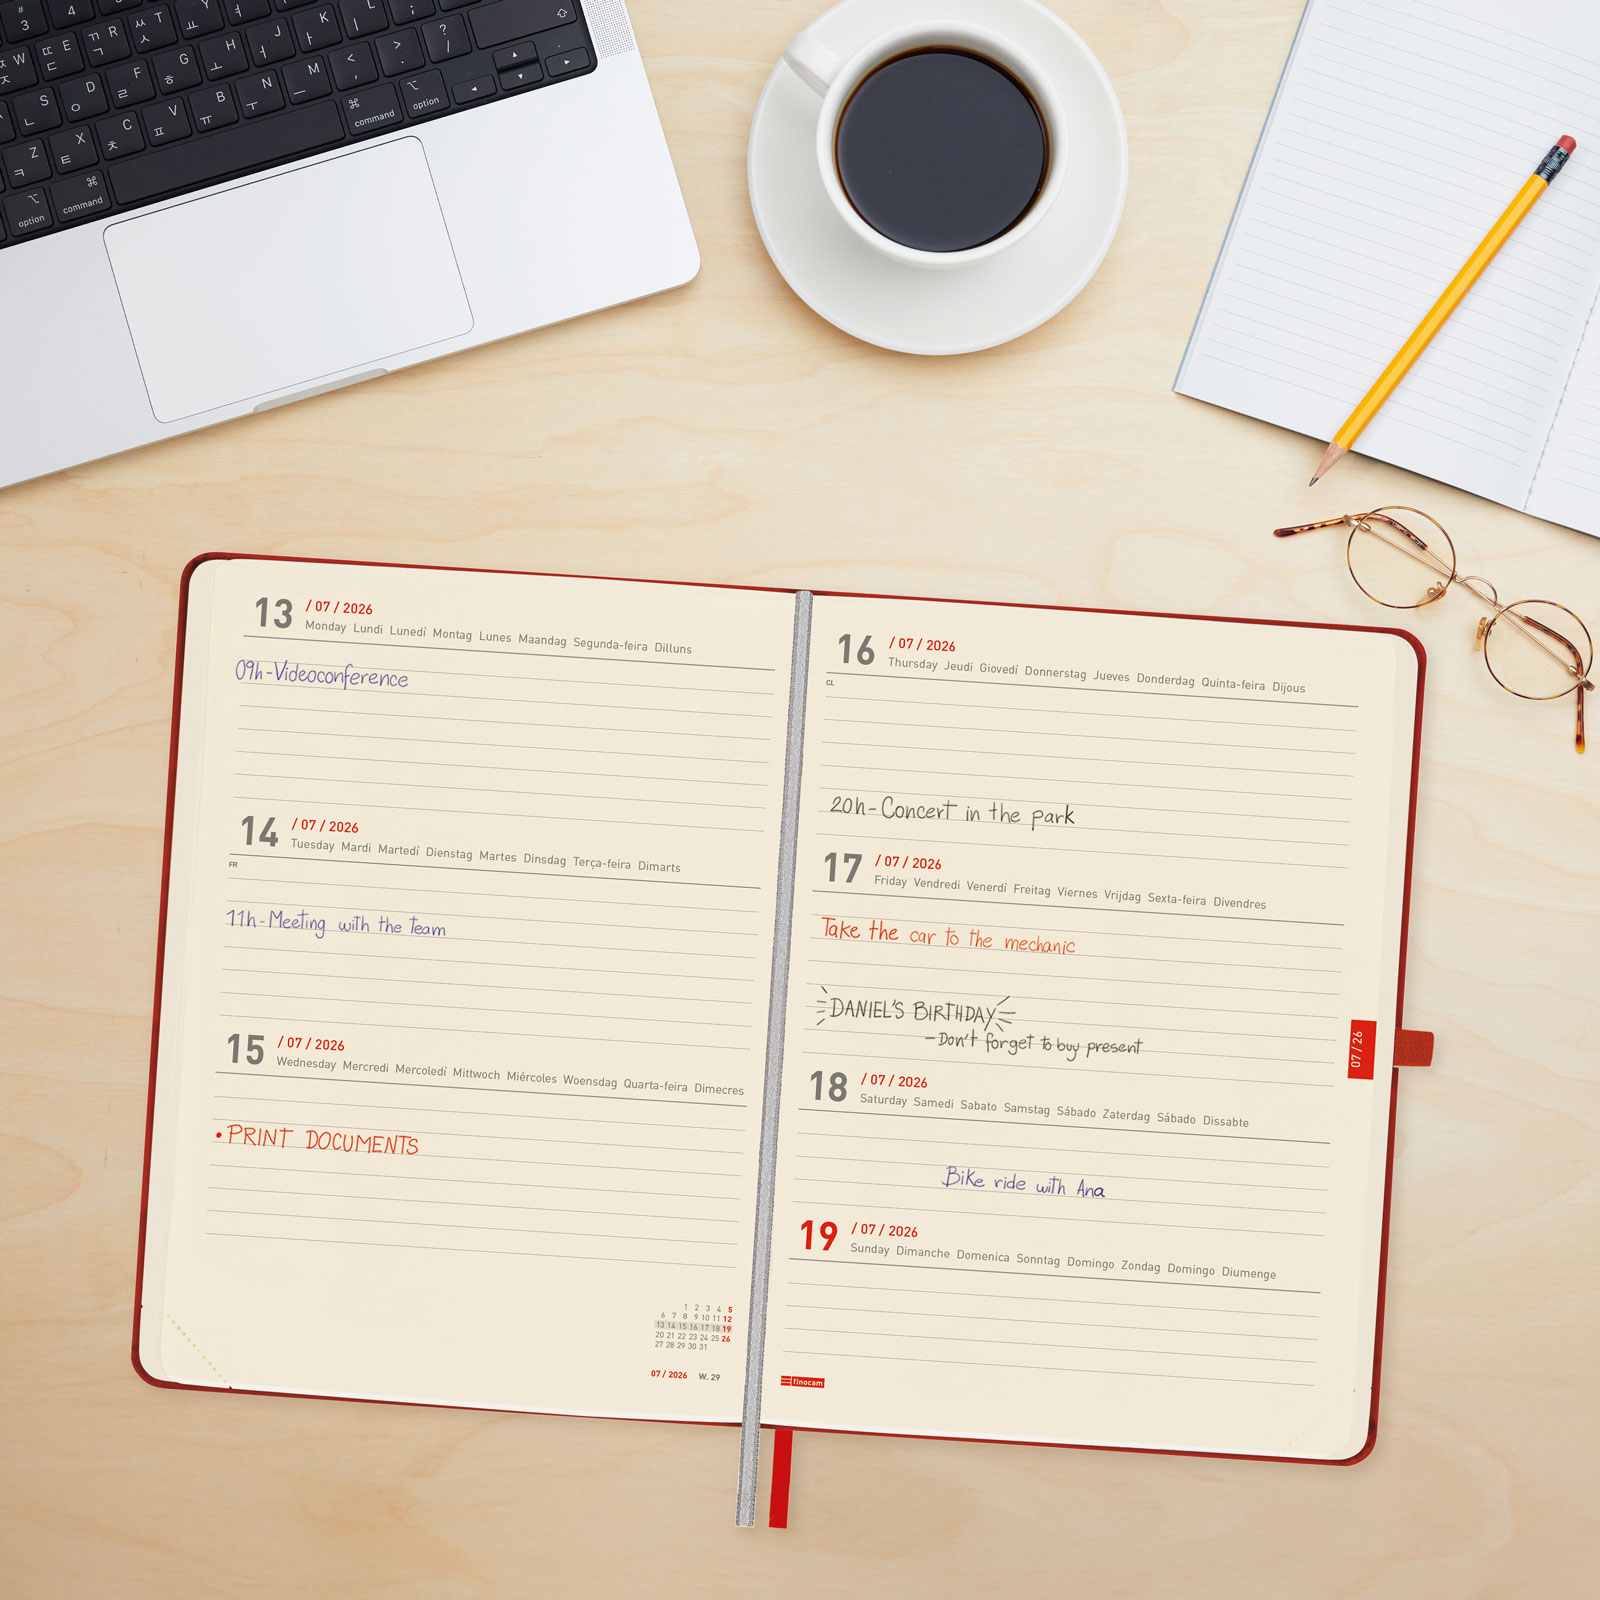 # 3 $ 4
ㅈ W ㄸ ㄷ E ㄲ ㄱ R ㅆ ㅅ T ㅛ Y
ㄴ S ㅇ D ㄹ F ㅎ G ㅗ H ㅓ J ㅏ K ㅣ L : ;
ㅋ Z ㅌ X ㅊ C ㅍ V ㅠ B ㅜ N ㅡ M < , > . ? /
option command command option
13 / 07 / 2026
Monday Lundi Lunedì Montag Lunes Maandag Segunda-feira Dilluns
09h-Videoconference
14 / 07 / 2026
Tuesday Mardi Martedì Dienstag Martes Dinsdag Terça-feira Dimarts
FR
11h-Meeting with the team
15 / 07 / 2026
Wednesday Mercredi Mercoledì Mittwoch Miércoles Woensdag Quarta-feira Dimecres
• PRINT DOCUMENTS
1 2 3 4 5
6 7 8 9 10 11 12
13 14 15 16 17 18 19
20 21 22 23 24 25 26
27 28 29 30 31
07 / 2026 W. 29
16 / 07 / 2026
Thursday Jeudi Giovedì Donnerstag Jueves Donderdag Quinta-feira Dijous
CL
20h-Concert in the park
17 / 07 / 2026
Friday Vendredi Venerdì Freitag Viernes Vrijdag Sexta-feira Divendres
Take the car to the mechanic
DANIEL'S BIRTHDAY
-Don't forget to buy present
07 / 26
18 / 07 / 2026
Saturday Samedi Sabato Samstag Sábado Zaterdag Sábado Dissabte
Bike ride with Ana
19 / 07 / 2026
Sunday Dimanche Domenica Sonntag Domingo Zondag Domingo Diumenge
finocam